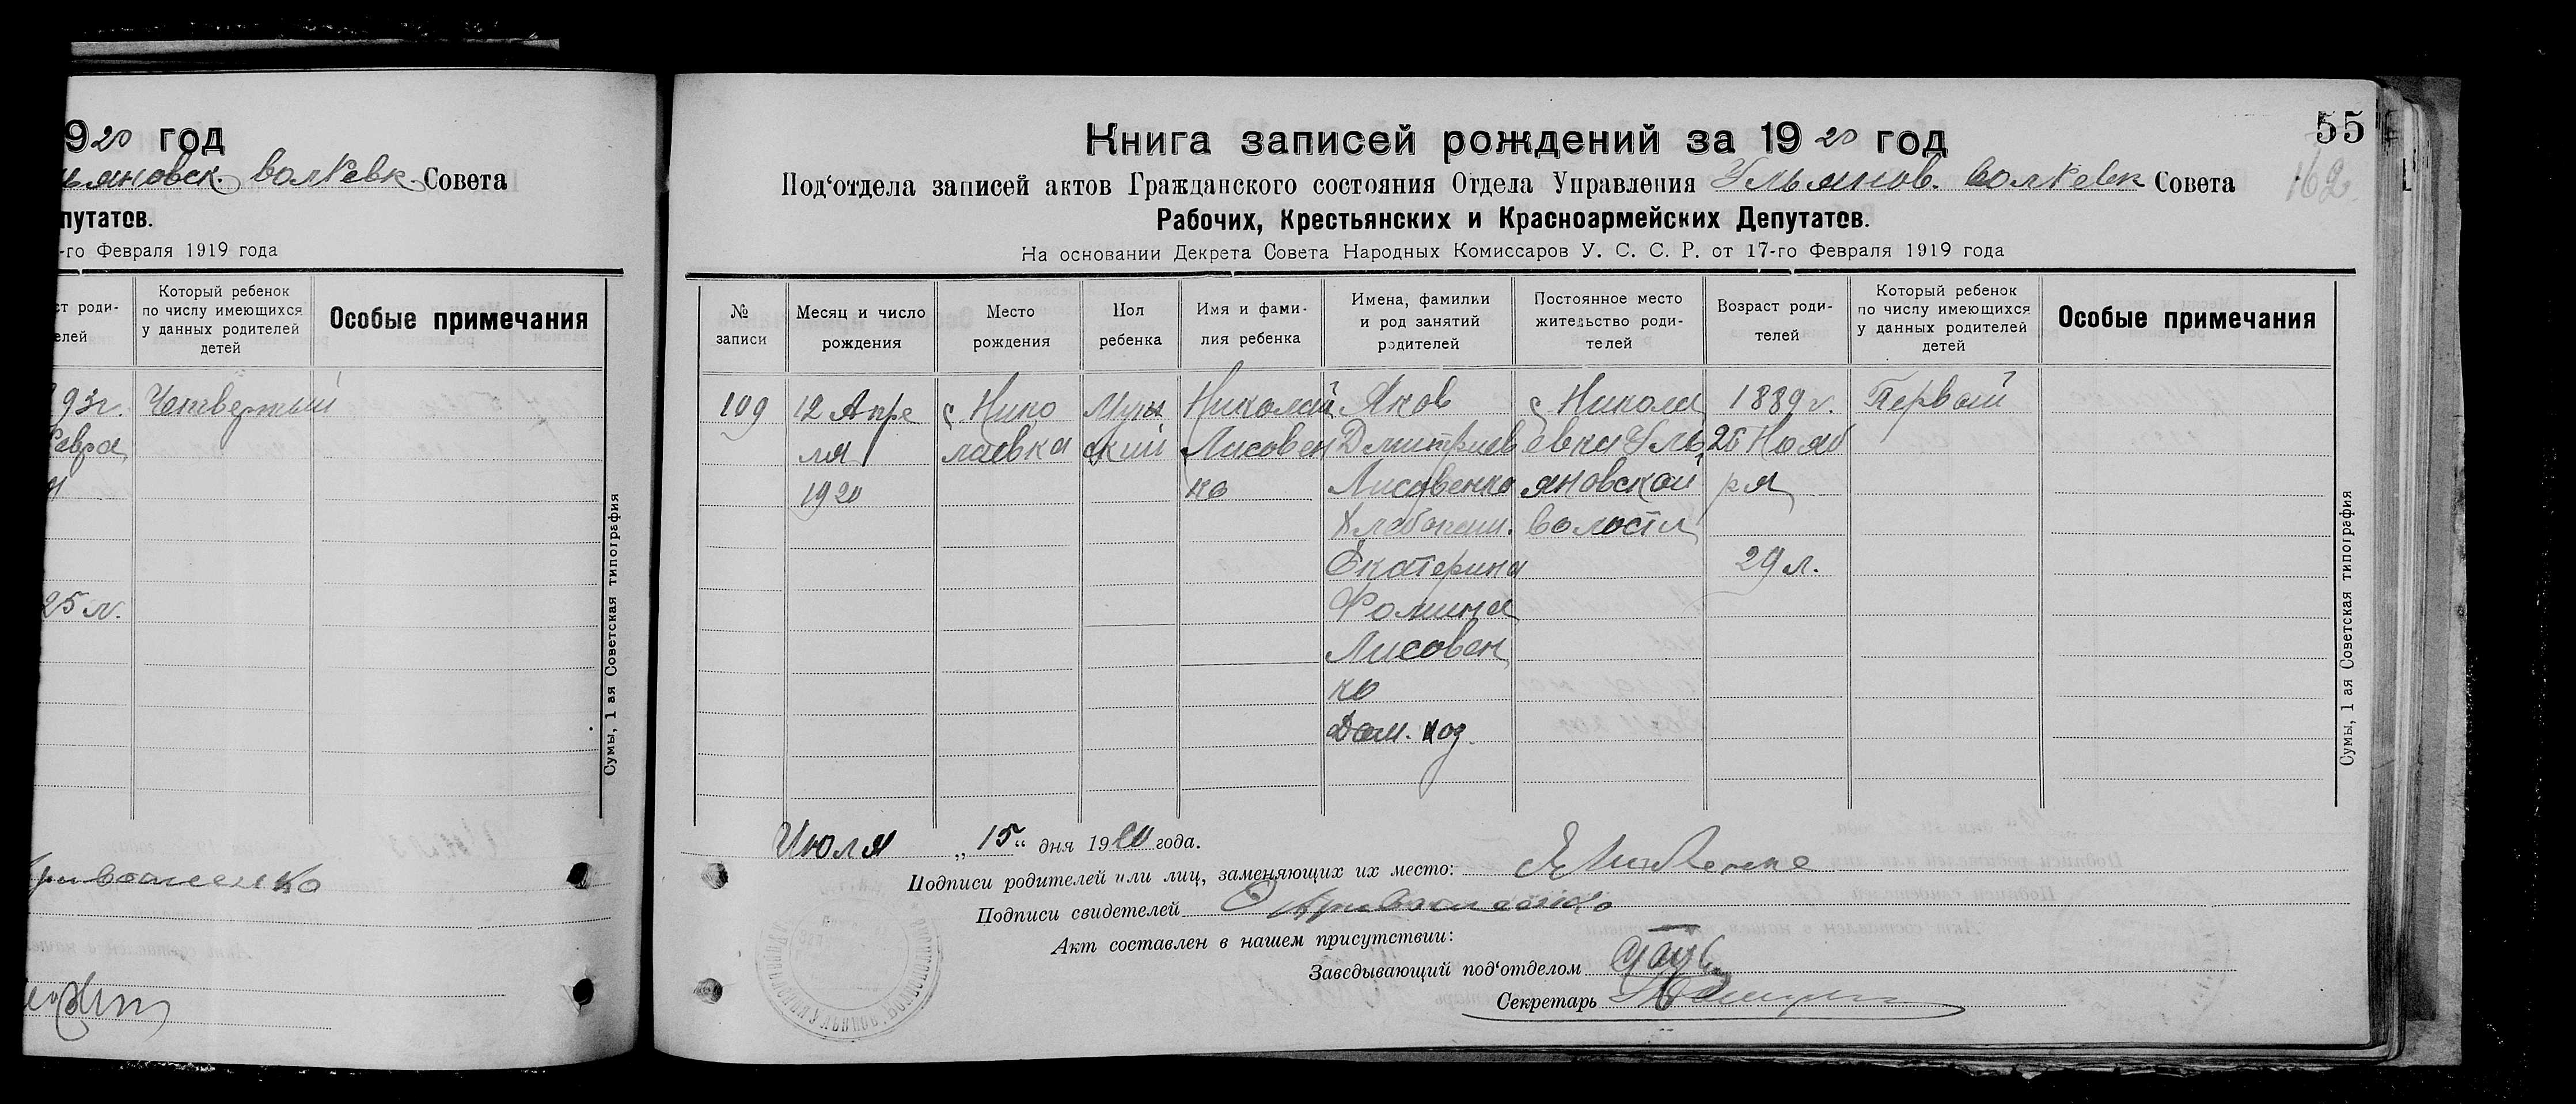 920 год
ьяновск. волРевк. Совета
путатов.
-го Февраля 1919 года
ст роди-
елей
Который ребенок
по числу имеющихся
у данных родителей
детей
Особые примечания
93г. Четвертый
Февра
25 л.
Сумы, 1 ая Советская типография
55
162
Книга записей рождений за 1920 год
Под‘отдела записей актов Гражданского состояния Отдела Управления Ульянов. волРевк Совета
Рабочих, Крестьянских и Красноармейских Депутатов.
На основании Декрета Совета Народных Комиссаров У. С. С. Р. от 17-го Февраля 1919 года
№
записи
Месяц и число
рождения
Место
рождения
Пол
ребенка
Имя и фами-
лия ребенка
Имена, фамилии
и род занятий
родителей
Постоянное место
жительство роди-
телей
Возраст роди-
телей
Который ребенок
по числу имеющихся
у данных родителей
детей
Особые примечания
109 12 Апре с Нико Муж Николай Яков с Никола 1889 г. Первый
ля лаевка ской Лисовен Дмитриев евки Уль 25 Нояб
1920 ко Лисовенко яновской ря
Хлебопаш. волости
Екатерина 29 л.
Фомина
Лисовен
ко
Дом. хоз.
Июля „15“ дня 1920 года.
Подписи родителей или лиц, заменяющих их место:
Подписи свидетелей
Акт составлен в нашем присутствии:
Заведывающий под‘отделом
Секретарь
Сумы, 1 ая Советская типография